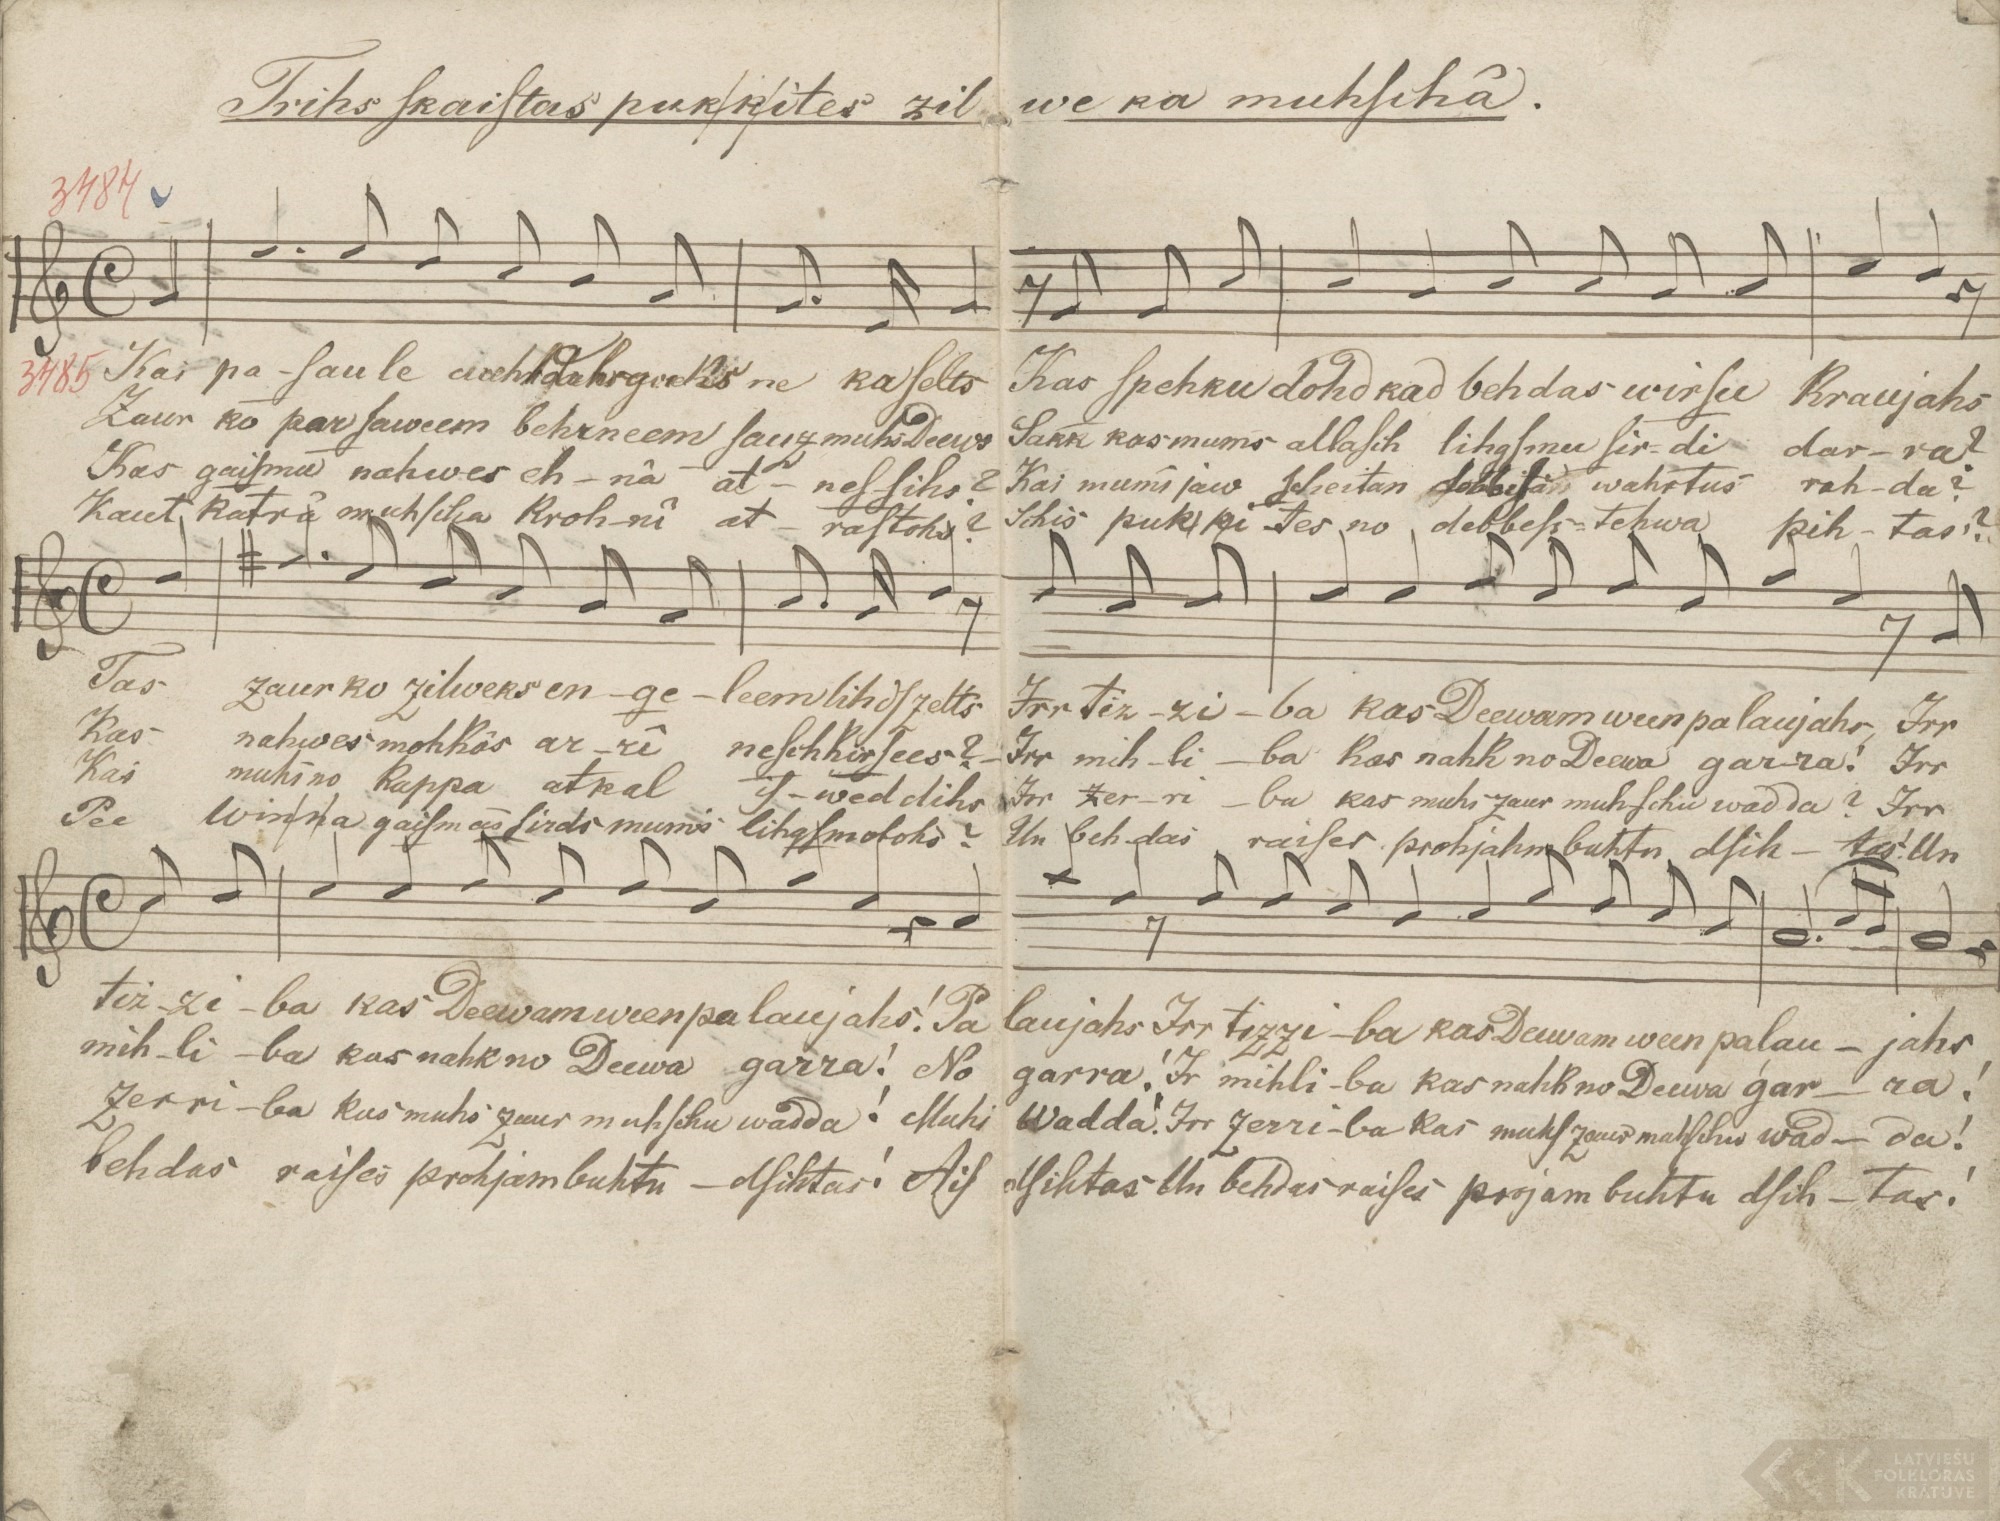 Trihs skaistas pukkites zilweka muhschâ.
3484
3485
Kas pa-saule dahrgaks ne ka selts Kas spehku dohd kad behdas wirsu kraujahs
Zaur ko par saweem behrneem sauz muhs Deews Sakk kas mums allasch lihgsmu sir-di dar-ra?
Kas gaismu nahwes eh-nâ at-nes-sihs? Kas mums jaw scheitan wahrtus rah-da?
Kaut katrâ muhscha kroh-nî at-rastohs? Schis pukki-tes no debbess-tehwa pih-tas?
Tas zaur ko zilweks en-ge-leem lihds zelts Irr tiz-zi-ba kas Deewam ween palaujahs, Irr
Kas nahwes mohkâs ar-rî neschkirsees?- Irr mih-li-ba kas nahk no Deewa gar-ra! Irr
Kas muhs no kappa atkal is-weddihs Irr zer-ri-ba kas muhs zaur muhschu wadda? Irr
Pee winna gaismas sirds mums lihgsmotohs? Un beh-das raises prohjahm buhtu dsih-tas! Un
tiz-zi-ba kas Deewam ween palaujahs! Pa laujahs Irr tizzi-ba kas Deewam ween palau-jahs
mih-li-ba kas nahk no Deewa garra! No garra! Ir mihli-ba kas nahk no Deewa gar-ra!
Zerri-ba kas muhs zaur muhschu wadda! Muhs wadda! Irr zerri-ba kas muhs zaur muhschu wad-da!
behdas raises prohjam buhtu-dsihtas! Ais dsihtas Un behdas raises projam buhtu dsih-tas!
LATVIEŠU
FOLKLORAS
KRĀTUVE